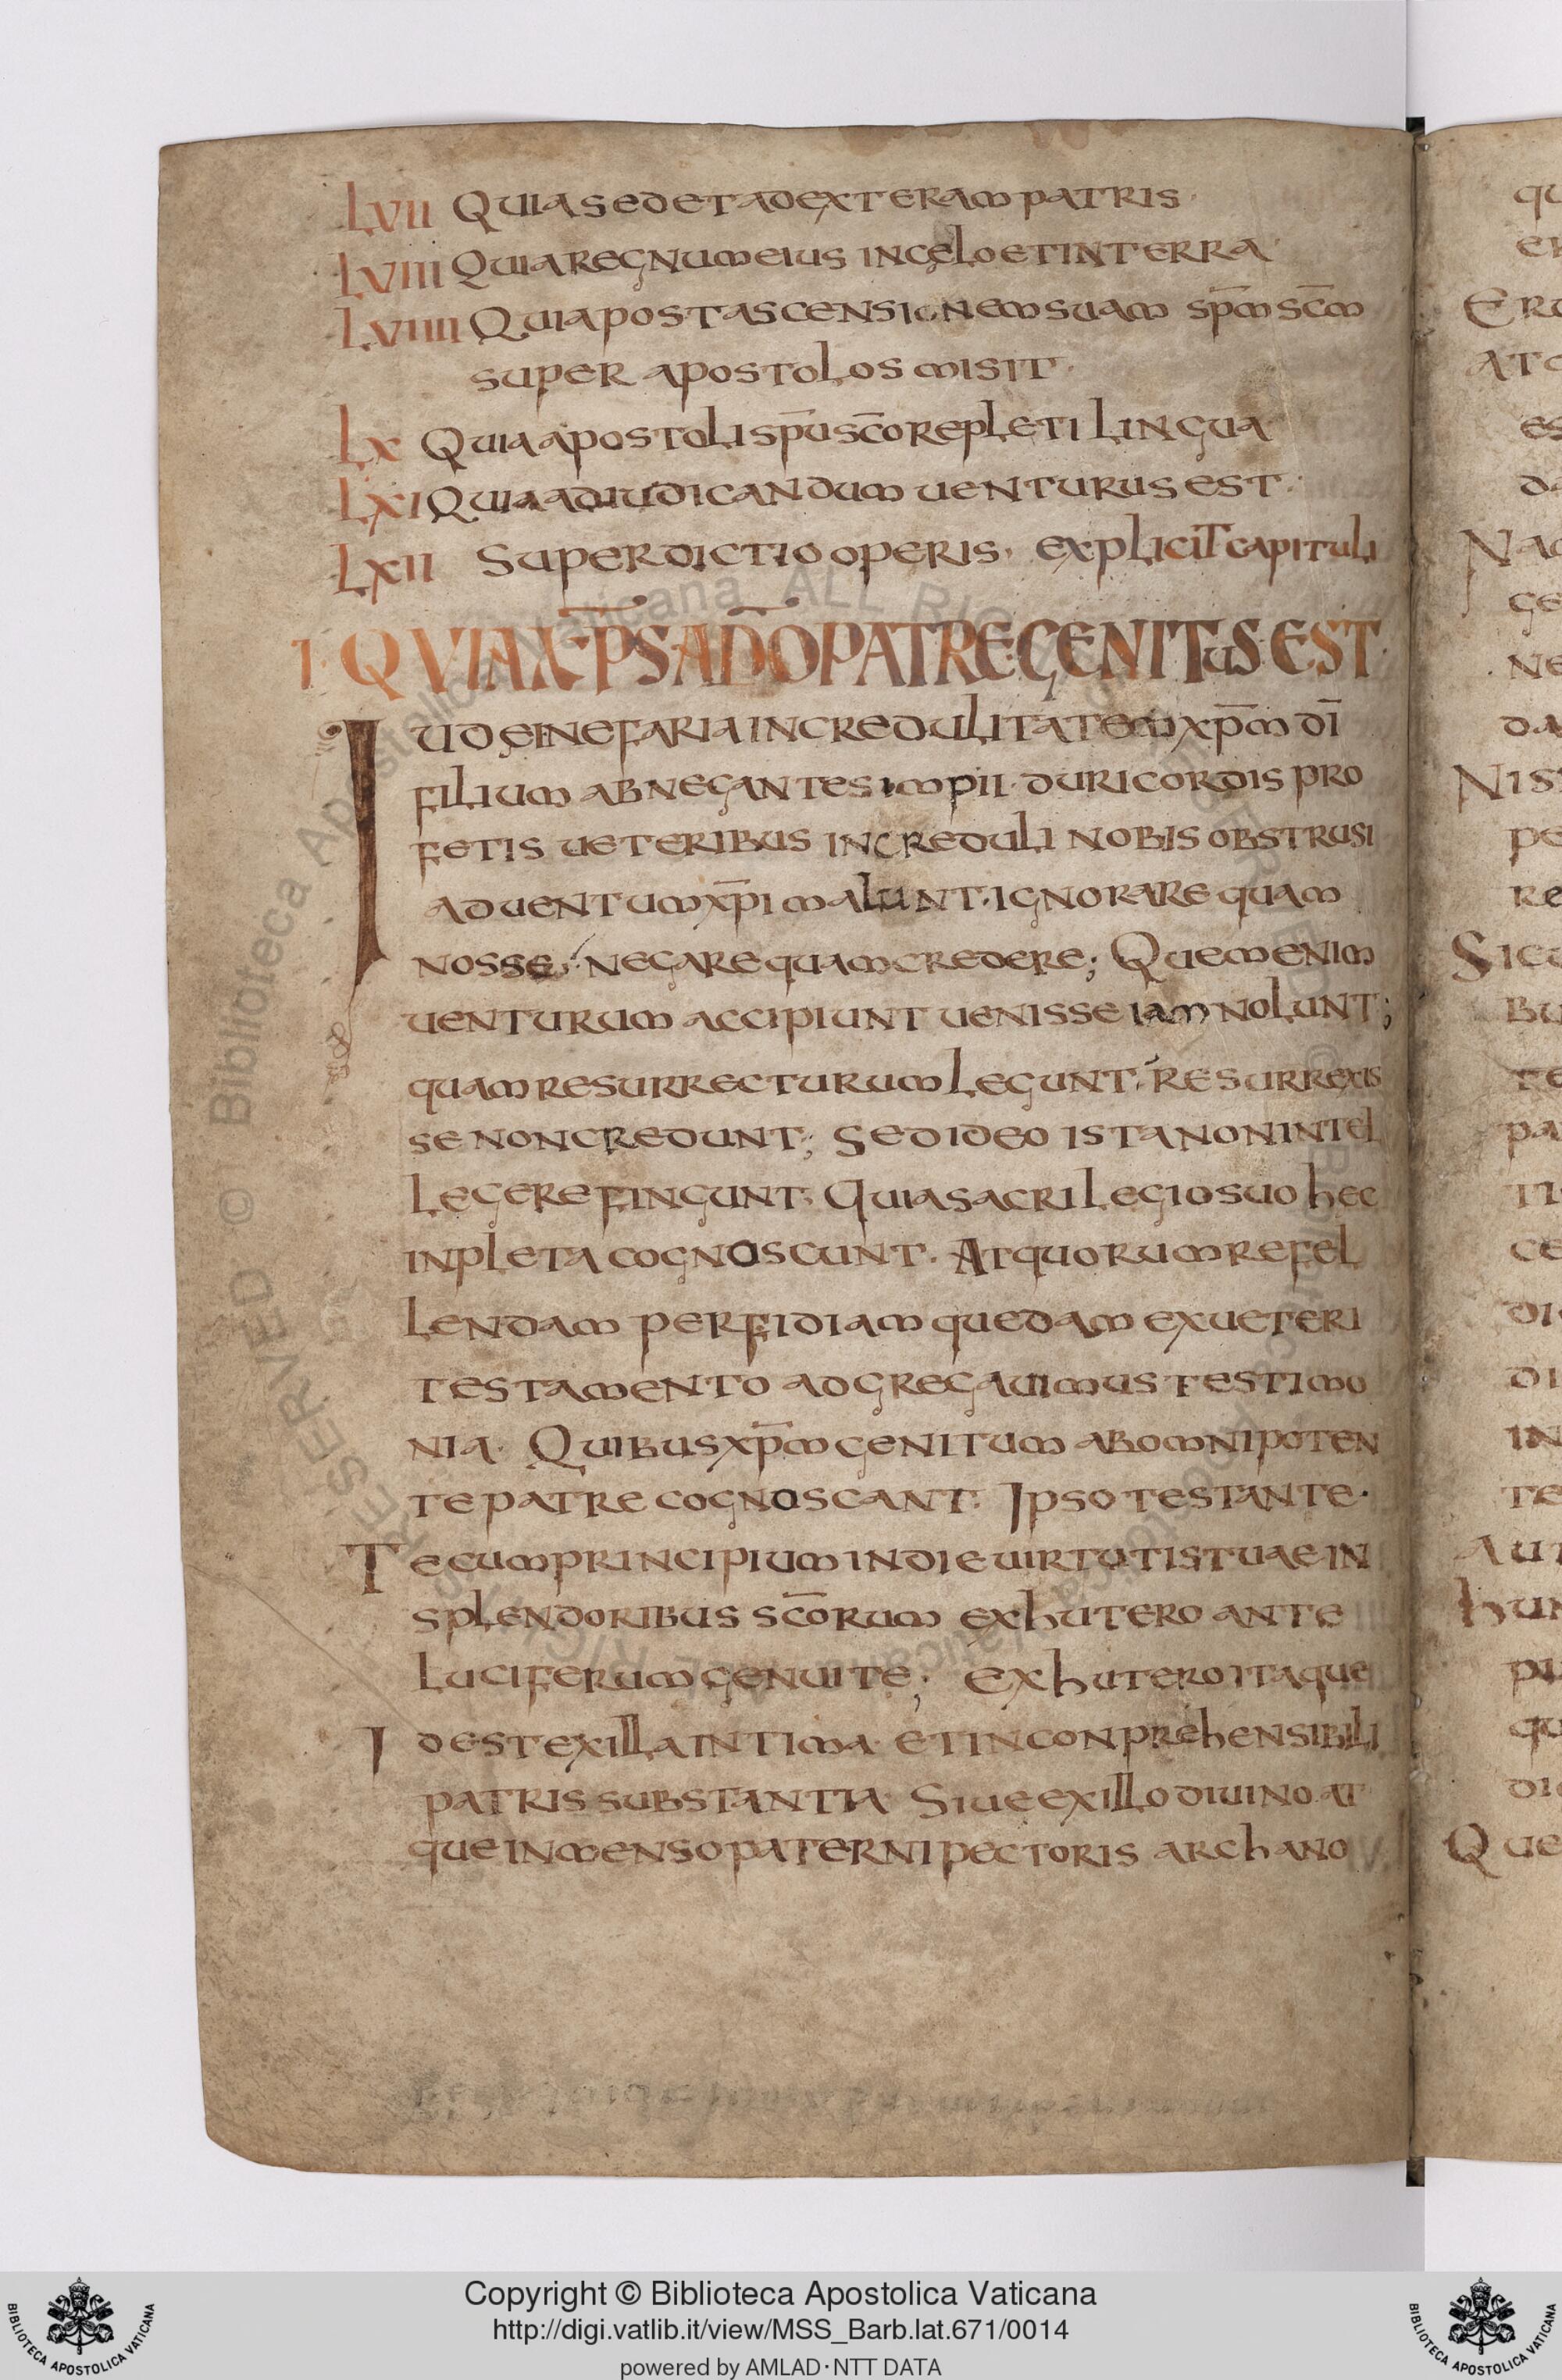 LVII QUIA SEDET AD EXTERAM PATRIS·
LVIII QUIA REGNUM EIUS IN CĘLO ET IN TERRA·
LVIIII QUIA POST ASCENSIONEM SUAM SP̅M SC̅M
SUPER APOSTOLOS MISIT·
LX QUIA APOSTOLI SP̅U SC̅O REPLETI LINGUA·
LXI QUIA AD IUDICANDUM UENTURUS EST·
LXII SUPERDICTIO OPERIS· EXPLICIT CAPITULI
I· QVIA X̅P̅S· A D̅O PATRE GENITUS· EST·
IUDĘI NEFARIA INCREDULITATEM XP̅M DI̅
FILIUM ABNEGANTES IMPII· DURI CORDIS PRO
FETIS UETERIBUS INCREDULI NOBIS OBSTRUSI
ADUENTUM XP̅I MALUNT· IGNORARE QUAM
NOSSE; NEGARE QUAM CREDERE; QUEM ENIM
UENTURUM ACCIPIUNT UENISSE IAM NOLUNT;
QUAM RESURRECTURUM LEGUNT; RESURREXIS
SE NON CREDUNT; SED IDEO ISTA NON INTEL
LEGERE FINGUNT; QUIA SACRILEGIO SUO HEC
INPLETA COGNOSCUNT· AT QUORUM REFEL
LENDAM PERFIDIAM QUEDAM EX UETERI
TESTAMENTO ADGREGAUIMUS TESTIMO
NIA· QUIBUS XP̅M GENITUM AB OMNIPOTEN
TE PATRE COGNOSCANT; IPSO TESTANTE·
TECUM PRINCIPIUM IN DIE UIRTUTIS TUAE IN
SPLENDORIBUS SC̅ORUM EX HUTERO ANTE
LUCIFERUM GENUI TE; EX HUTERO ITAQUE
ID EST EX ILLA INTIMA· ET INCONPREHENSIBILI
PATRIS SUBSTANTIA· SIUE EX ILLO DIUINO· AT
QUE INMENSO PATERNI PECTORIS ARCHANO
Copyright © Biblioteca Apostolica Vaticana
http://digi.vatlib.it/view/MSS_Barb.lat.671/0014
powered by AMLAD·NTT DATA
BIBLIOTECA APOSTOLICA VATICANA
BIBLIOTECA APOSTOLICA VATICANA